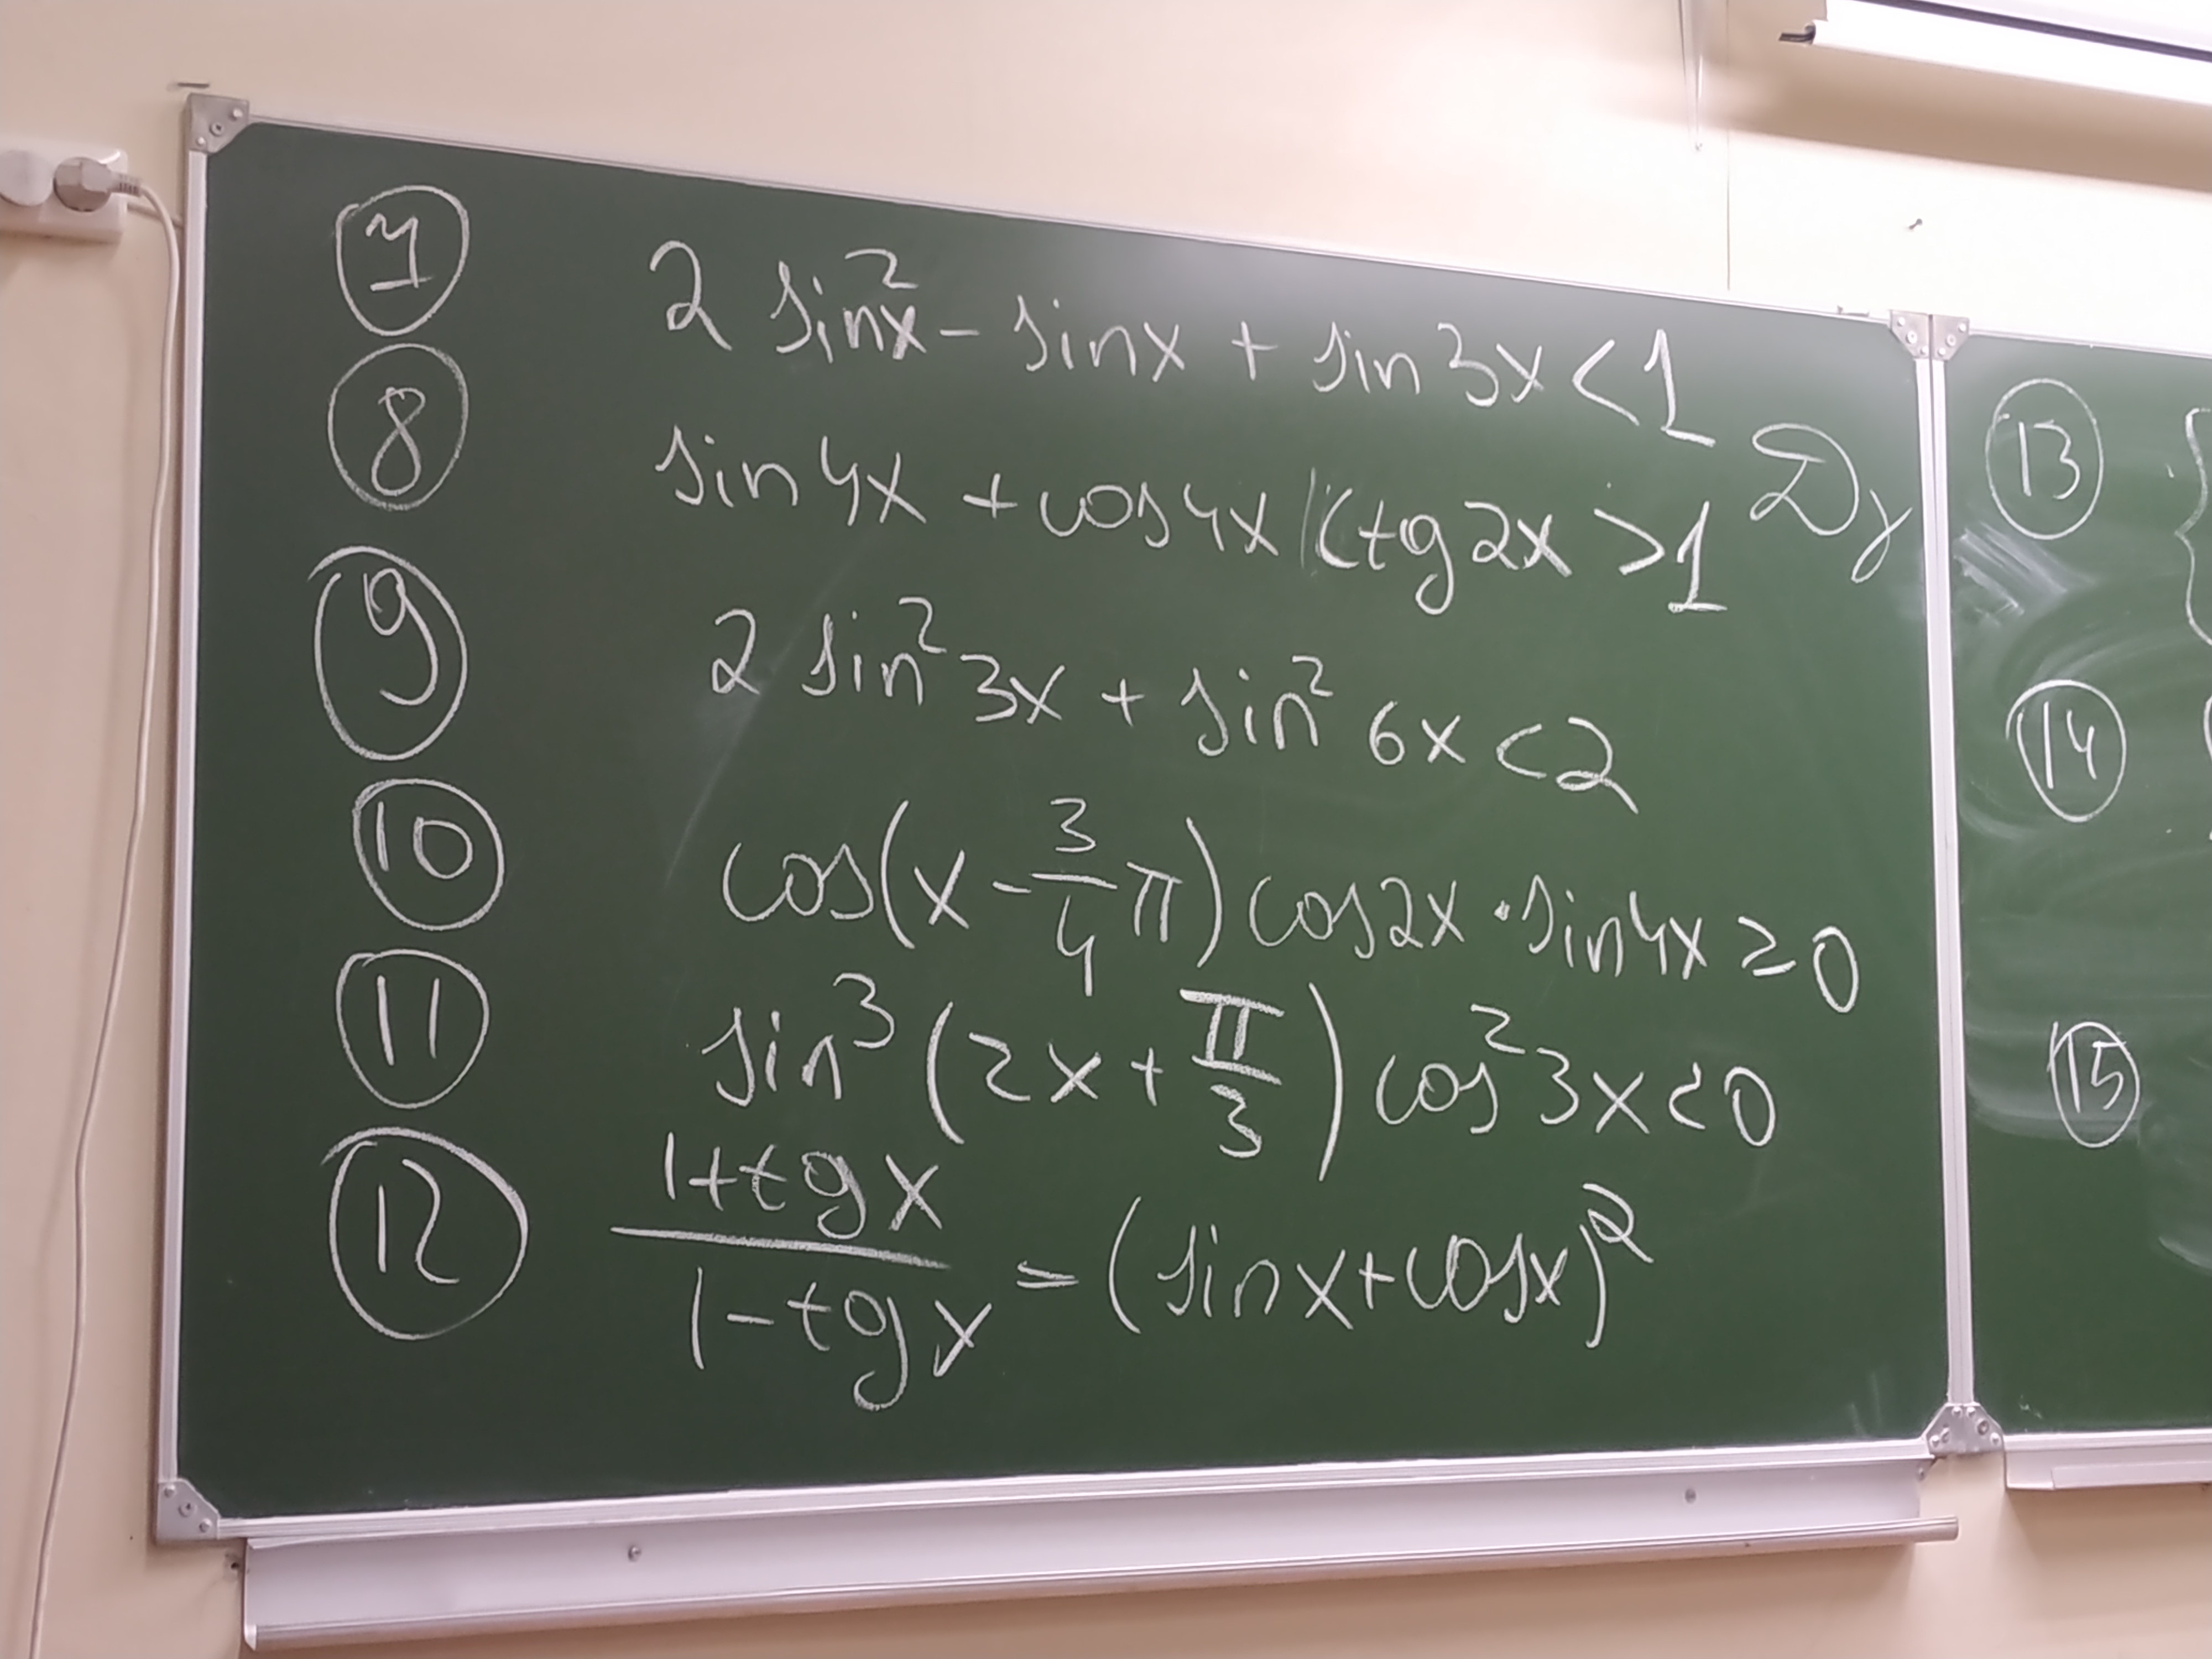 7 2 sin²x - sinx + sin 3x < 1
8 sin 4x + cos 4x ctg 2x > 1
9 2 sin² 3x + sin² 6x < 2
10 cos(x - 3/4 π) cos 2x · sin 4x ≥ 0
11 sin³ (2x + π/3) cos² 3x < 0
12 (1+tg x)/(1-tg x) = (sin x + cos x)²
13
14
15